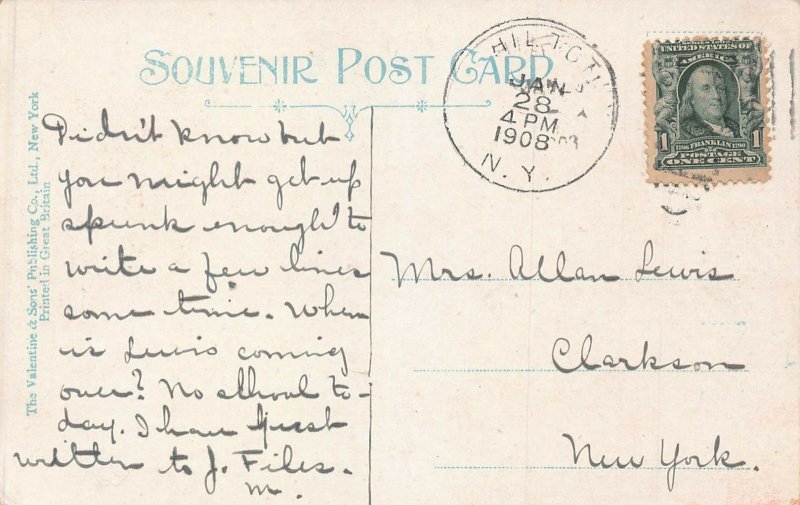 SOUVENIR POST CARD
HILTON
JAN
28
4 PM
1908
N. Y.
UNITED STATES OF
AMERICA
1 1706 FRANKLIN 1790 1
POSTAGE
ONE CENT
The Valentine & Sons' Publishing Co., Ltd., New York
Printed in Great Britain
Didn't know but
you might get up
spunk enough to
write a few lines
some time. When
is Lewis coming
over? No school to-
day. I have just
written to J. Files.
M.
Mrs. Allan Lewis
Clarkson
New York.